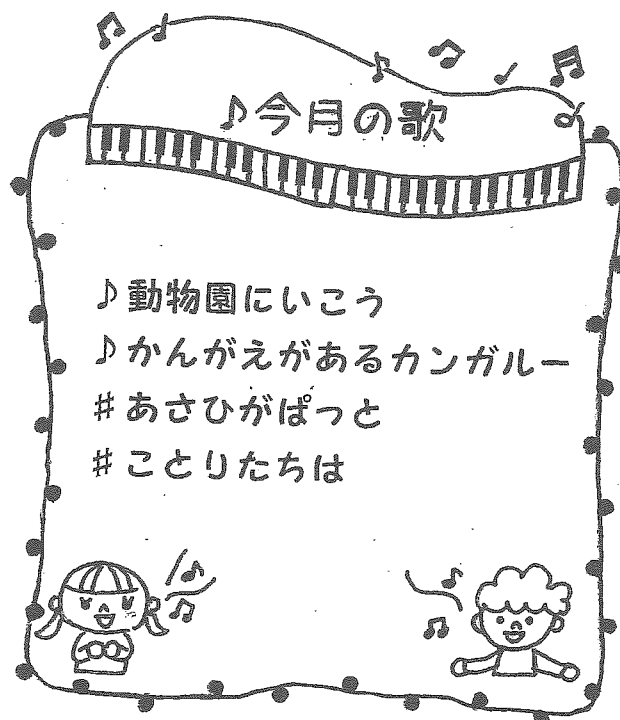 ♪今月の歌
♪動物園にいこう
♪かんがえがあるカンガルー
♯あさひがぱっと
♯ことりたちは